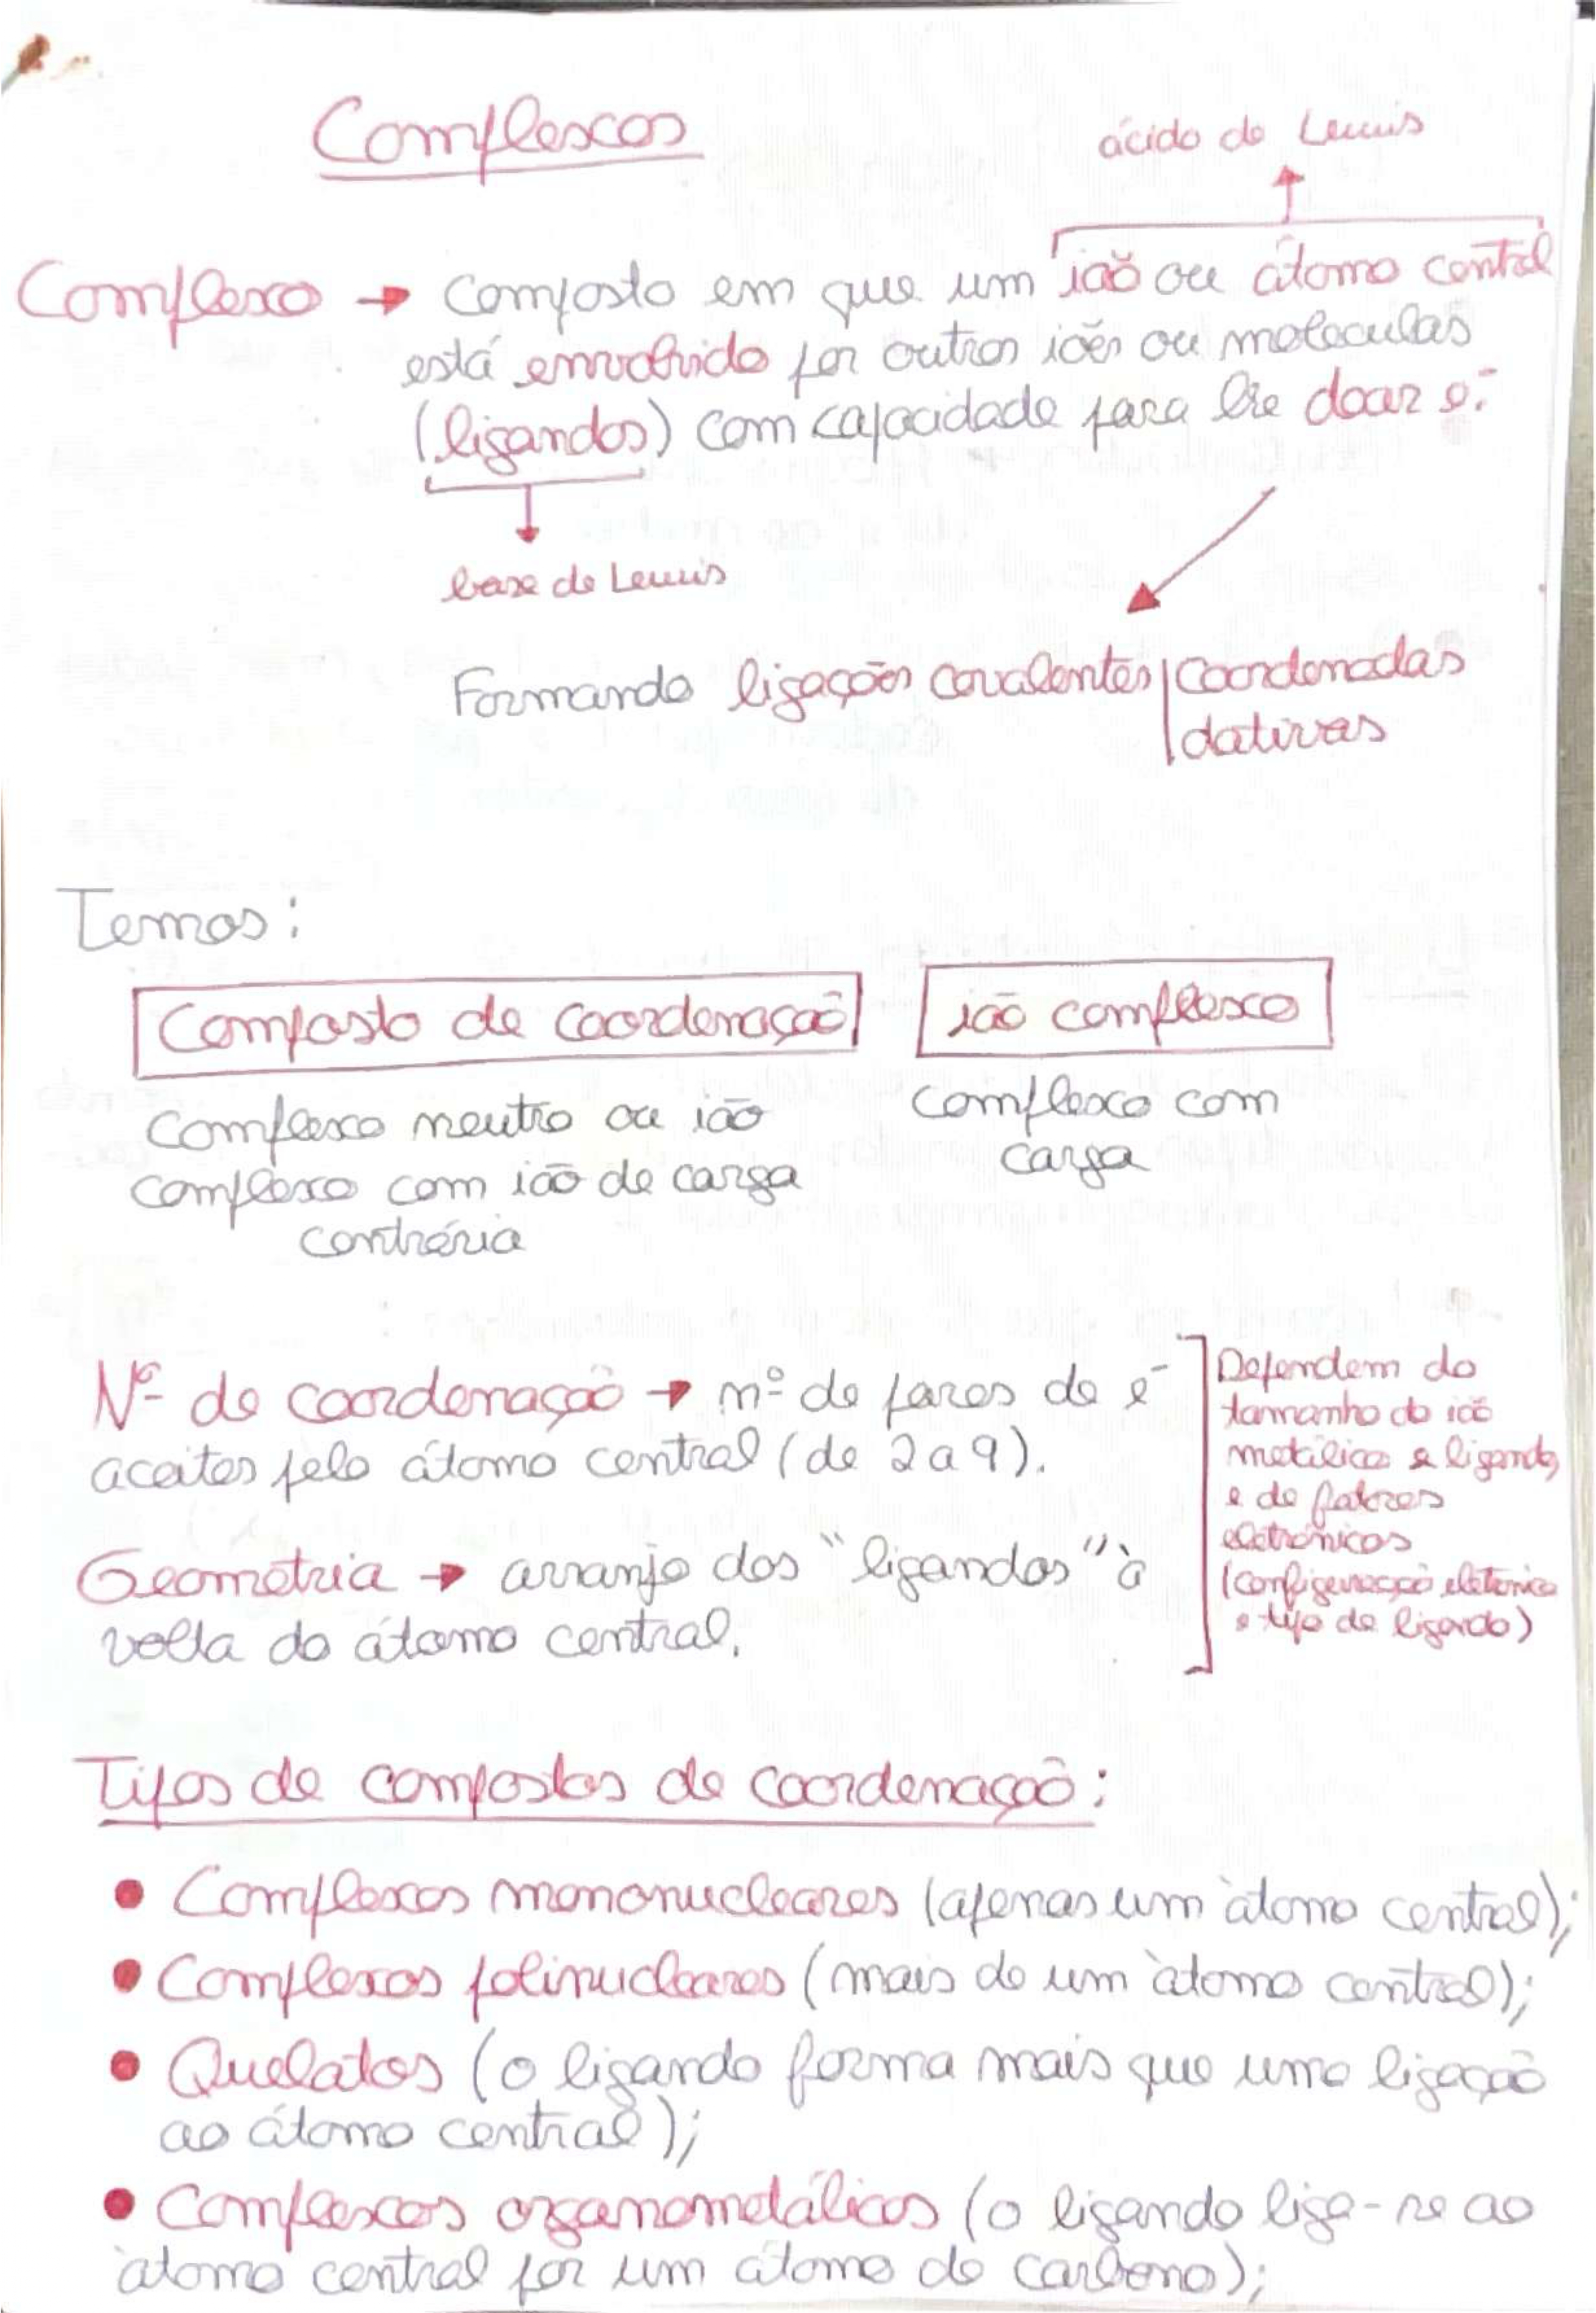 Complexos
ácido de Lewis
Complexo → Composto em que um ião ou átomo central
está envolvido por outros iões ou moleculas
(ligandos) com capacidade para lhe doar e⁻.
base de Lewis
Formando ligações covalentes | Coordenadas
dativas
Temos:
Composto de coordenação
Complexo neutro ou ião
complexo com ião de carga
contrária
ião complexo
complexo com
carga
Nº de coordenação → nº de pares de e⁻
aceites pelo átomo central (de 2 a 9).
Geometria → arranjo dos "ligandos" à
volta do átomo central.
Dependem do
tamanho do ião
metálico e ligandos
e de fatores
eletrónicos
(configuração eletónica
e tipo de ligando)
Tipos de compostos de coordenação:
• Complexos mononucleares (apenas um àtomo central);
• Complexos polinucleares (mais de um àtomo central);
• Quelatos (o ligando forma mais que uma ligação
ao átomo central);
• Complexos organometálicos (o ligando liga-se ao
àtomo central por um átomo de carbono);